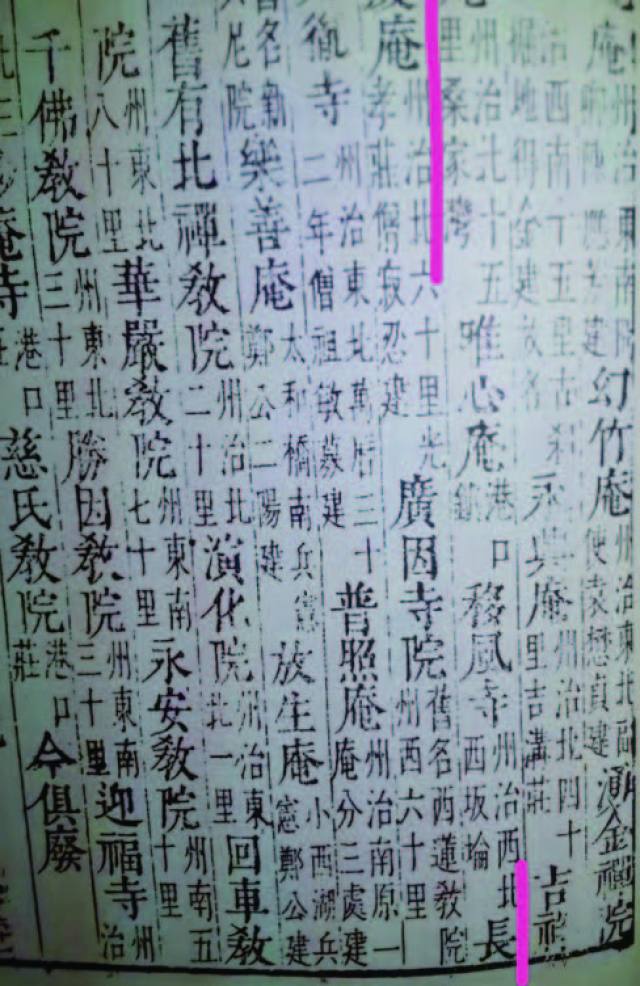 庵州治東南院建幻竹庵州治東北副使袁懋貞建湧金禪院
治西南五里古刹掘地得金建故名永興庵州治北四十里吉溝莊吉祥
州治北十五里桑家灣唯心庵港口鎮移風寺州治西北西坂埨長
庵州治北六十里光孝莊僧寂忍建廣因寺院舊名西蓮教院州西六十里
寺州治東北萬曆三十二年僧祖敏募建普照庵州治南原一庵分三處建
名新尼院樂善庵太和橋南兵憲鄭公二陽建放生庵小西湖兵憲鄭公建
舊有北禪教院州治北二十里演化院州治東北一里回車教
院州東北八十里華嚴教院州東南七十里永安教院州南五十里
千佛教院州東北三十里勝因教院州東南三十里迎福寺州治
北三庵寺港口莊慈氏教院港口莊今俱廢